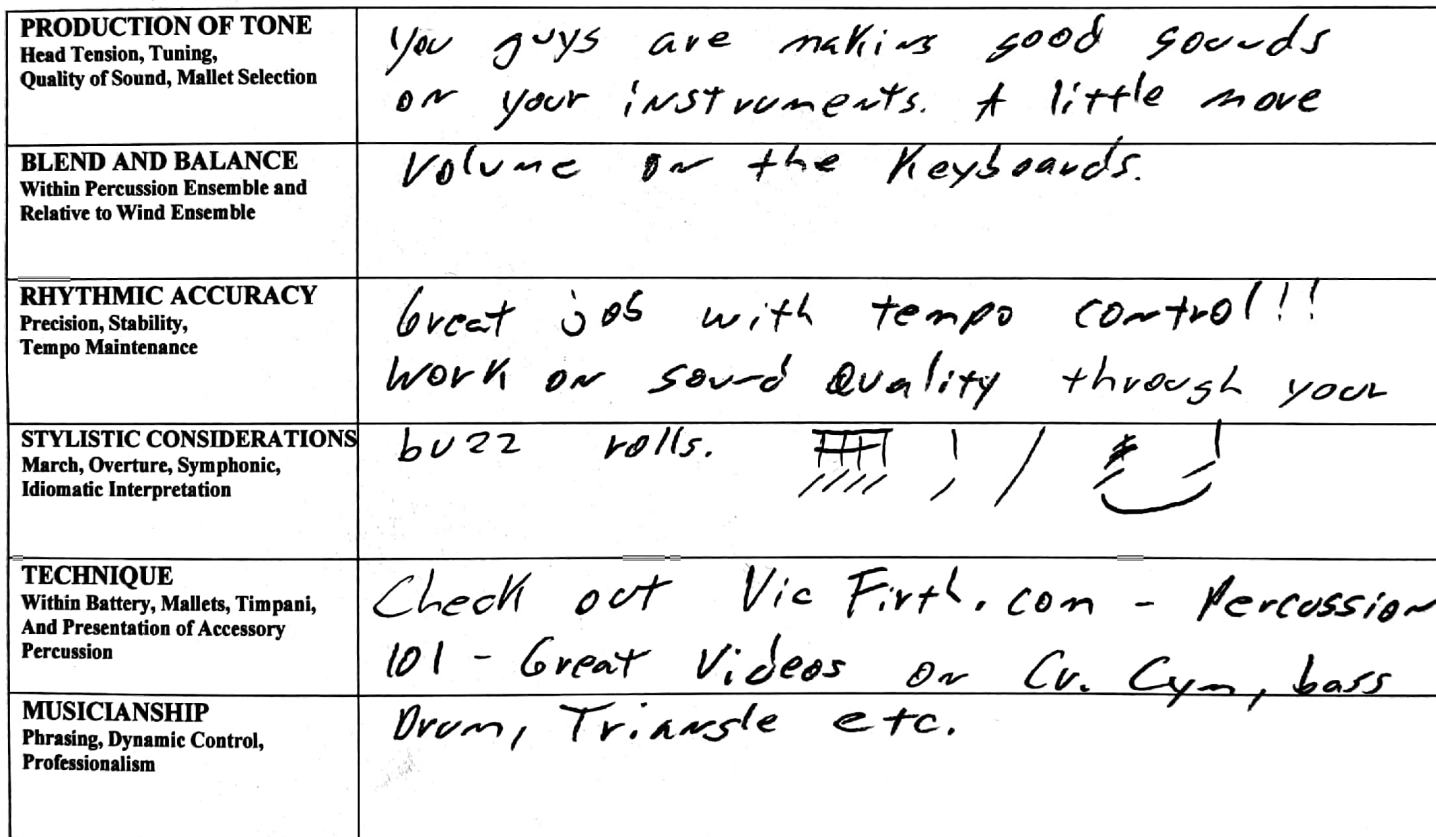 PRODUCTION OF TONE
Head Tension, Tuning,
Quality of Sound, Mallet Selection
You guys are making good sounds
on your instruments. A little more
BLEND AND BALANCE
Within Percussion Ensemble and
Relative to Wind Ensemble
Volume on the Keyboards.
RHYTHMIC ACCURACY
Precision, Stability,
Tempo Maintenance
Great job with tempo control!!
Work on sound Quality through your
STYLISTIC CONSIDERATIONS
March, Overture, Symphonic,
Idiomatic Interpretation
buzz rolls.
TECHNIQUE
Within Battery, Mallets, Timpani,
And Presentation of Accessory
Percussion
Check out Vic Firth.com - Percussion
101 - Great Videos on Cr. Cym, bass
MUSICIANSHIP
Phrasing, Dynamic Control,
Professionalism
Drum, Triangle etc.